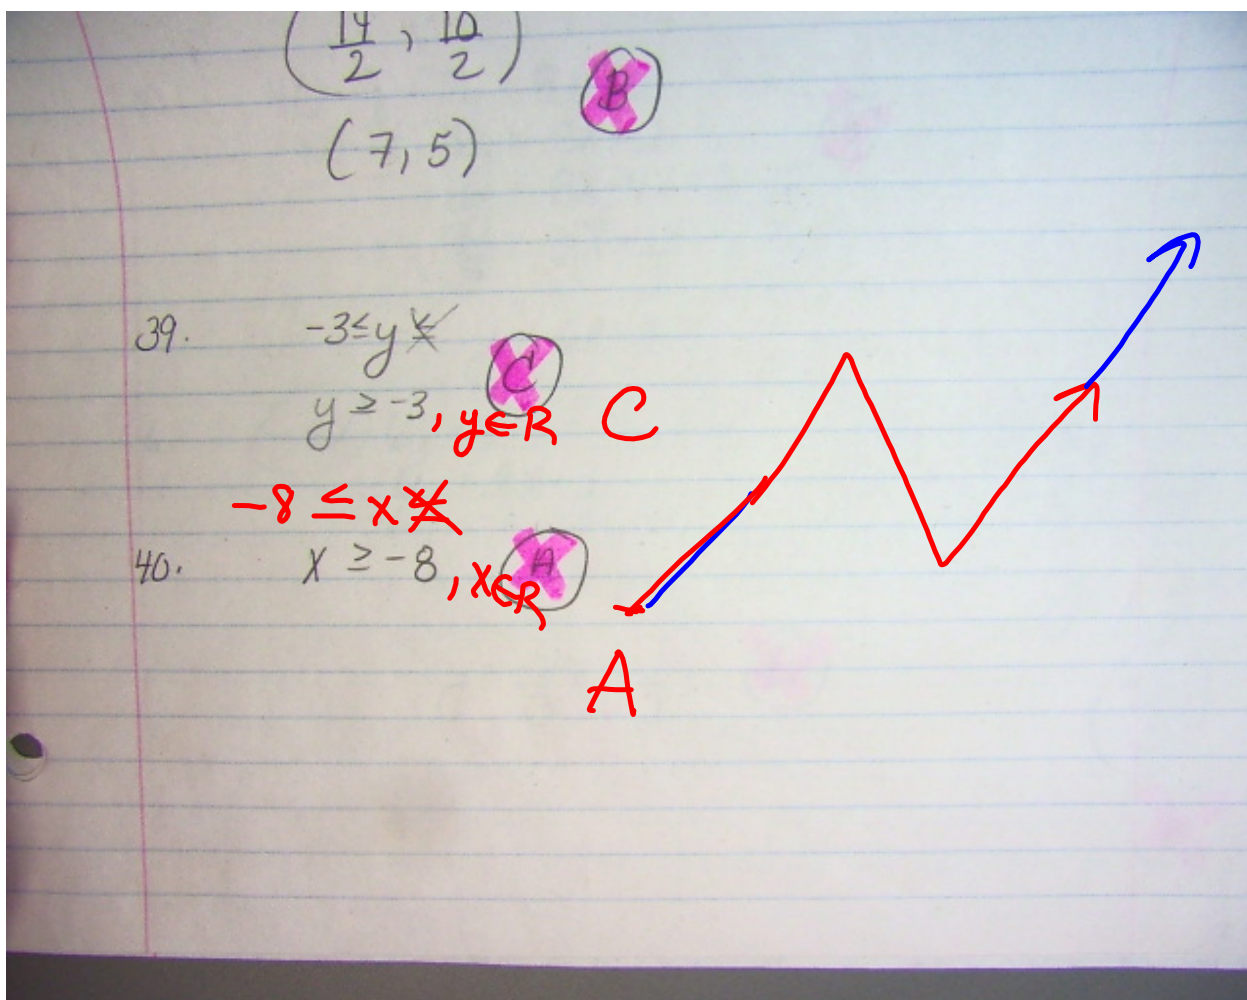 (14/2, 10/2)
B
(7, 5)
39. -3≤y≤
C
y ≥ -3, y∈R C
-8 ≤ x ≤
40. x ≥ -8, x∈R A
A